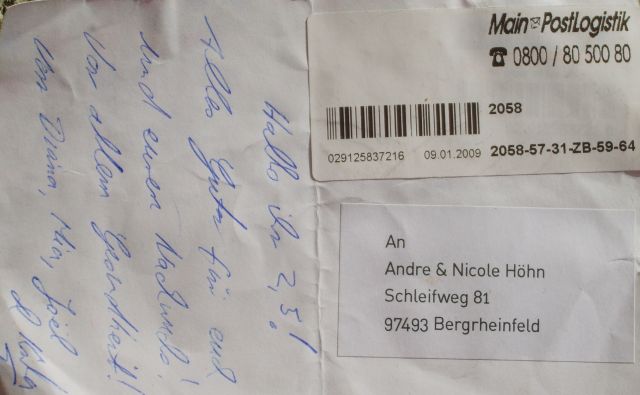 Main PostLogistik
☎ 0800 / 80 500 80
2058
029125837216 09.01.2009 2058-57-31-ZB-59-64
An
Andre & Nicole Höhn
Schleifweg 81
97493 Bergrheinfeld
Hallo ihr 2,5!
Alles Gute für euch
und euren Nachwuchs!
Vor allem Gesundheit!
Von Diana, Mia, Joel